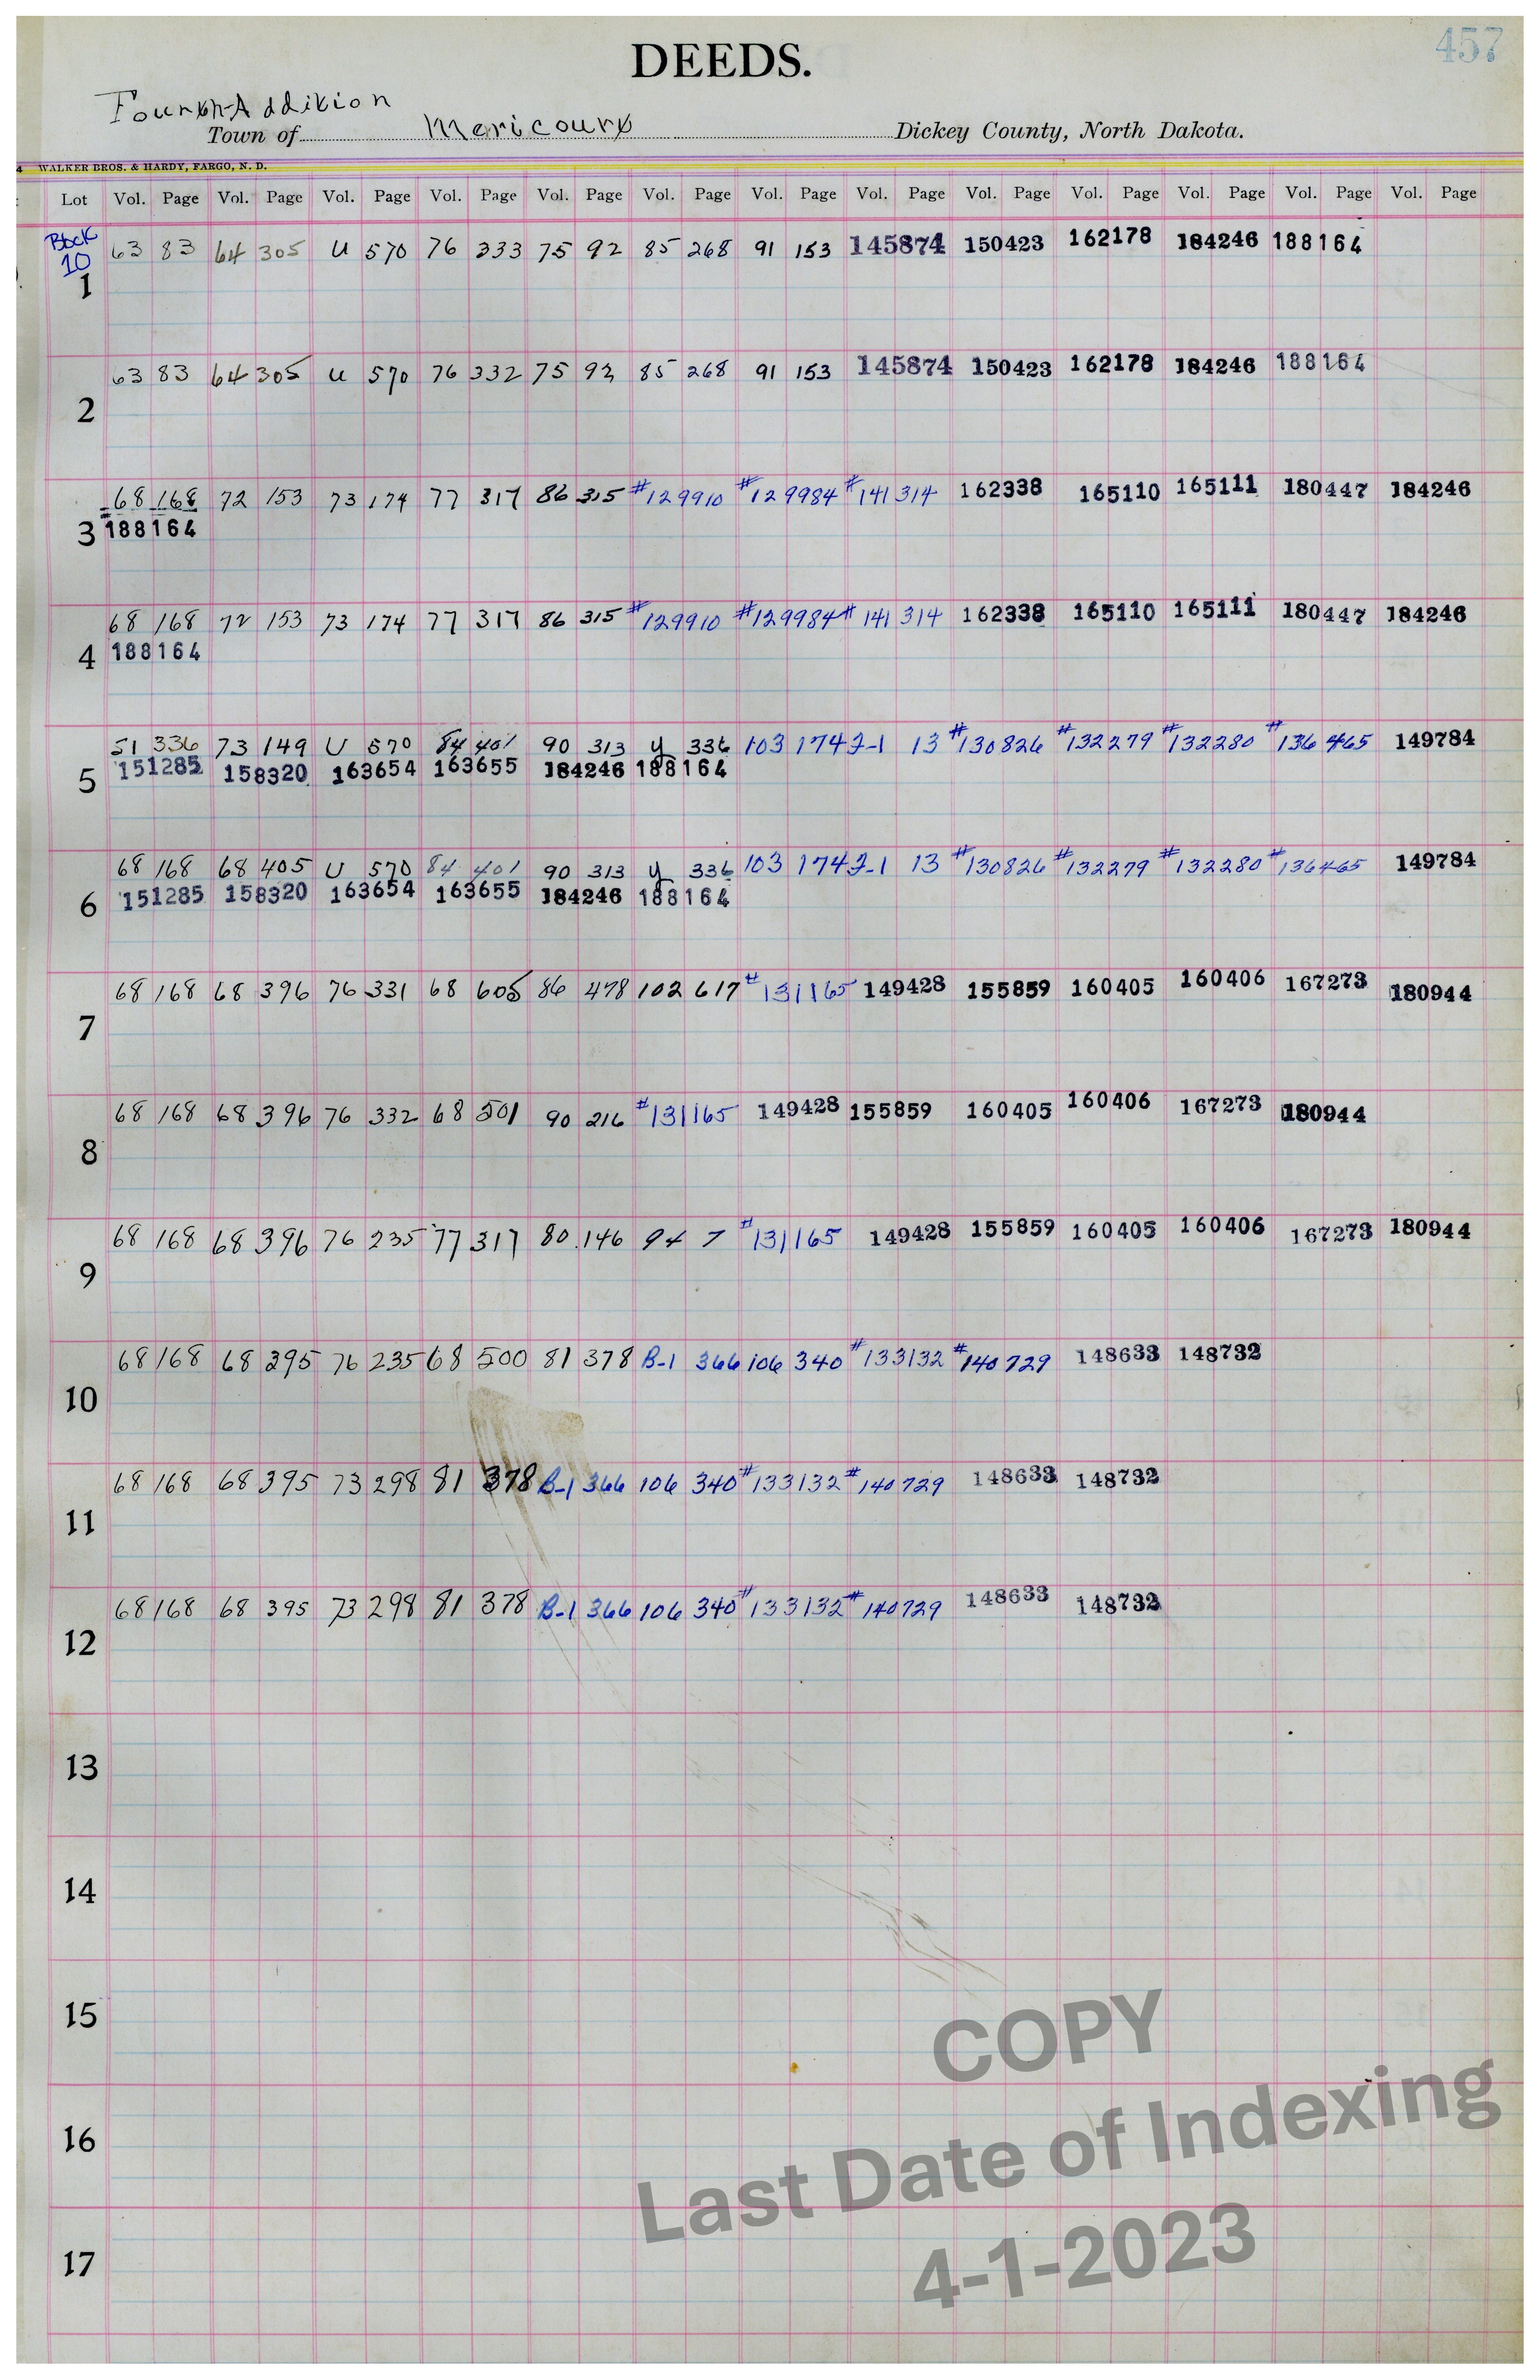 457
DEEDS.
Fourth Addition
Town of Mericourt Dickey County, North Dakota.
WALKER BROS. & HARDY, FARGO, N. D.
Lot Vol. Page Vol. Page Vol. Page Vol. Page Vol. Page Vol. Page Vol. Page Vol. Page Vol. Page Vol. Page Vol. Page Vol. Page Vol. Page
Block 63 83 64 305 U 570 76 333 75 92 85 268 91 153 145874 150423 162178 184246 188164
10
1
63 83 64 305 U 570 76 332 75 92 85 268 91 153 145874 150423 162178 184246 188164
2
68 168 72 153 73 174 77 317 86 315 #129910 #129984 #141314 162338 165110 165111 180447 184246
3 188164
68 168 72 153 73 174 77 317 86 315 #129910 #129984 #141314 162338 165110 165111 180447 184246
4 188164
51 336 73 149 U 570 84 401 90 313 y 336 103 174 J-1 13 #130826 #132279 #132280 #136465 149784
5 151285 158320 163654 163655 184246 188164
68 168 68 405 U 570 84 401 90 313 y 336 103 174 J-1 13 #130826 #132279 #132280 #136465 149784
6 151285 158320 163654 163655 184246 188164
68 168 68 396 76 331 68 605 86 478 102 617 #131165 149428 155859 160405 160406 167273 180944
7
68 168 68 396 76 332 68 501 90 216 #131165 149428 155859 160405 160406 167273 180944
8
68 168 68 396 76 235 77 317 80 146 94 7 #131165 149428 155859 160405 160406 167273 180944
9
68 168 68 395 76 235 68 500 81 378 B-1 366 106 340 #133132 #140729 148633 148732
10
68 168 68 395 73 298 81 378 B-1 366 106 340 #133132 #140729 148633 148732
11
68 168 68 395 73 298 81 378 B-1 366 106 340 #133132 #140729 148633 148732
12
13
14
15
16
17
COPY
Last Date of Indexing
4-1-2023